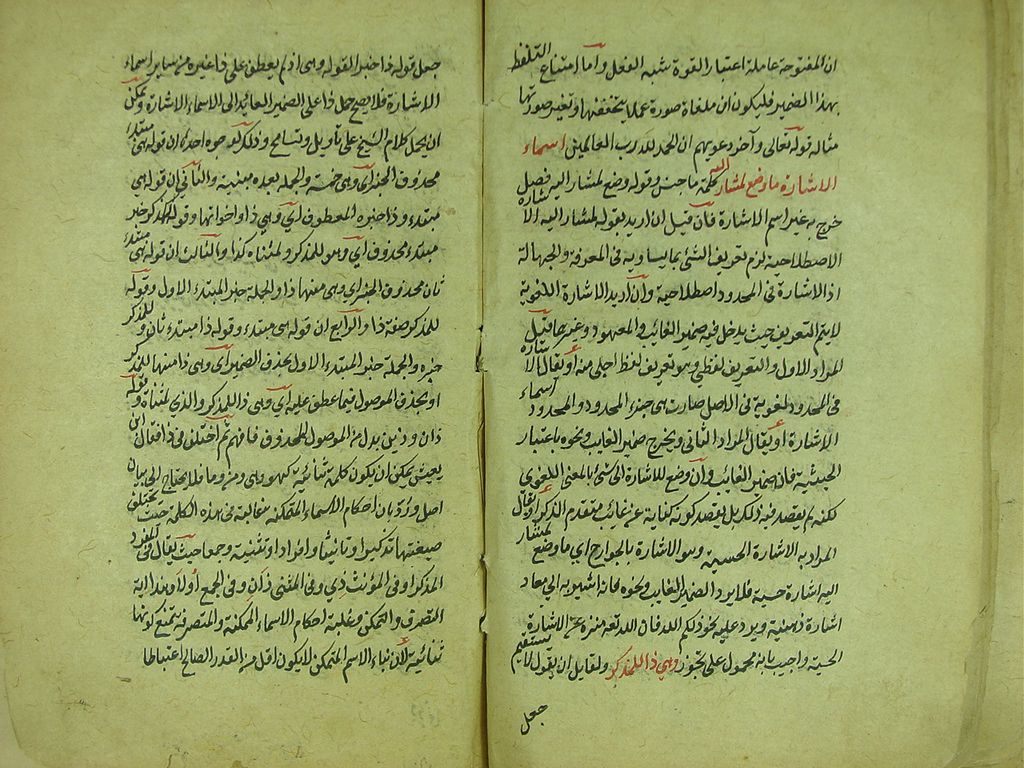 ان المفتوحة عاملة اعتبار القوة شبه الفعل وأما امتناع التلفظ
بهذا الضمير فليكون ان ملغاة صورة عملا بتخفيفها وتغير صورتها
مثاله قوله تعالى وآخر دعويهم ان الحمد لله رب العالمين اسماء
الاشارة ما وضع لمشار اليه كلمة ما جنس وقوله وضع لمشار اليه فصل
خرج به غير اسم الاشارة فان قيل ان اريد بقوله لمشار اليه الاشارة
الاصطلاحية لزم تعريف الشئ بما يساويه في المعرفة والجهالة
اذ الاشارة في المحدود اصطلاحية وان اريد الاشارة اللغوية
لا يتم التعريف حيث يدخل فيه ضمير الغايب والمعهود وغيرهما قيل
المراد الاول والتعريف لفظي وهو تعريف لفظ بلفظ اجلى منه او يقال الاشارة
في المحدود لغوية في الاصل صارت هى جزء المحدود والمحدود اسماء
الاشارة او يقال المراد الثانى ويخرج ضمير الغايب ونحوه باعتبار
الحيثية فان ضمير الغائب وان وضع للاشارة الى شئ بالمعنى اللغوى
لكنه لم يقصد فيه ذلك بل يقصد كونه كناية عن غائب متقدم الذكر او يقال
المراد به الاشارة الحسية وهو الاشارة بالجوارح اى ما وضع لمشار
اليه اشارة حسية فلا يرد الضمير الغايب ونحوه فانه اشير به الى معاد
اشارة ذهنية ويرد عليه نحو ذلكم الله فان الله تعه منزه عن الاشارة
الحسية واجيب بانه محمول على تجوز وهي ذا للمذكر ولقايل ان يقول لا يستقيم
جعل
جعل قوله ذا خبرا لقوله وهى اذ لم يعطف على ذا غيره من ساير اسماء
الاشارة فلا يصح حمل ذا على الضمير العائد الى الاسماء الاشارة ويمكن
ان يحمل كلام الشيخ على تأويل وتسامح وذلك لوجوه احدها ان قوله هى مبتدأ
محذوف الخبر اى وهى خمسة والجملة بعده مبينة والثاني ان قوله هى
مبتدء وذا خبره المعطوف اي وهي ذا واخواتها وقوله للمذكر خبر
مبتدء محذوف اي وهو للمذكر ولمثناه كذا والثالث ان قوله هى مبتدء
ثان محذوف الخبر اى وهى منها ذا والجملة خبر المبتدء الاول وقوله
للمذكر صفة ذا والرابع ان قوله هى مبتدء وقوله ذا مبتدء ثان وللمذكر
خبره والجملة خبر المبتدء الاول بحذف الضمير اى وهى ذا منها للمذكر
او بحذف الموصول فيما عطف عليه اي وهى ذا للمذكر والذي لمثناه وقوله
ذان وذين بدل من الموصول المحذوف فافهم ثم اختلف في ذا فقال ابن
يعيش يمكن ان يكون كلمة ثنائية كهو وهى ومن وما فلا يحتاج الى بيان
اصل ورد بان احكام الاسماء المتمكنة غالبة في هذه الكلمة حيث يختلف
صيغتها تذكيرا وتانيثا وافرادا وتثنية وجمعا حيث يقال في المفرد
المذكر ذا وفى المؤنث ذي وفى المثنى ذان وفى الجمع أولاء وهذا اية
التصرف والتمكن وغلبة احكام الاسماء المتمكنة والمتصرفة يمنع كونها
ثنائية لان بناء الاسم المتمكن لا يكون اقل من القدر الصالح اعتباطا